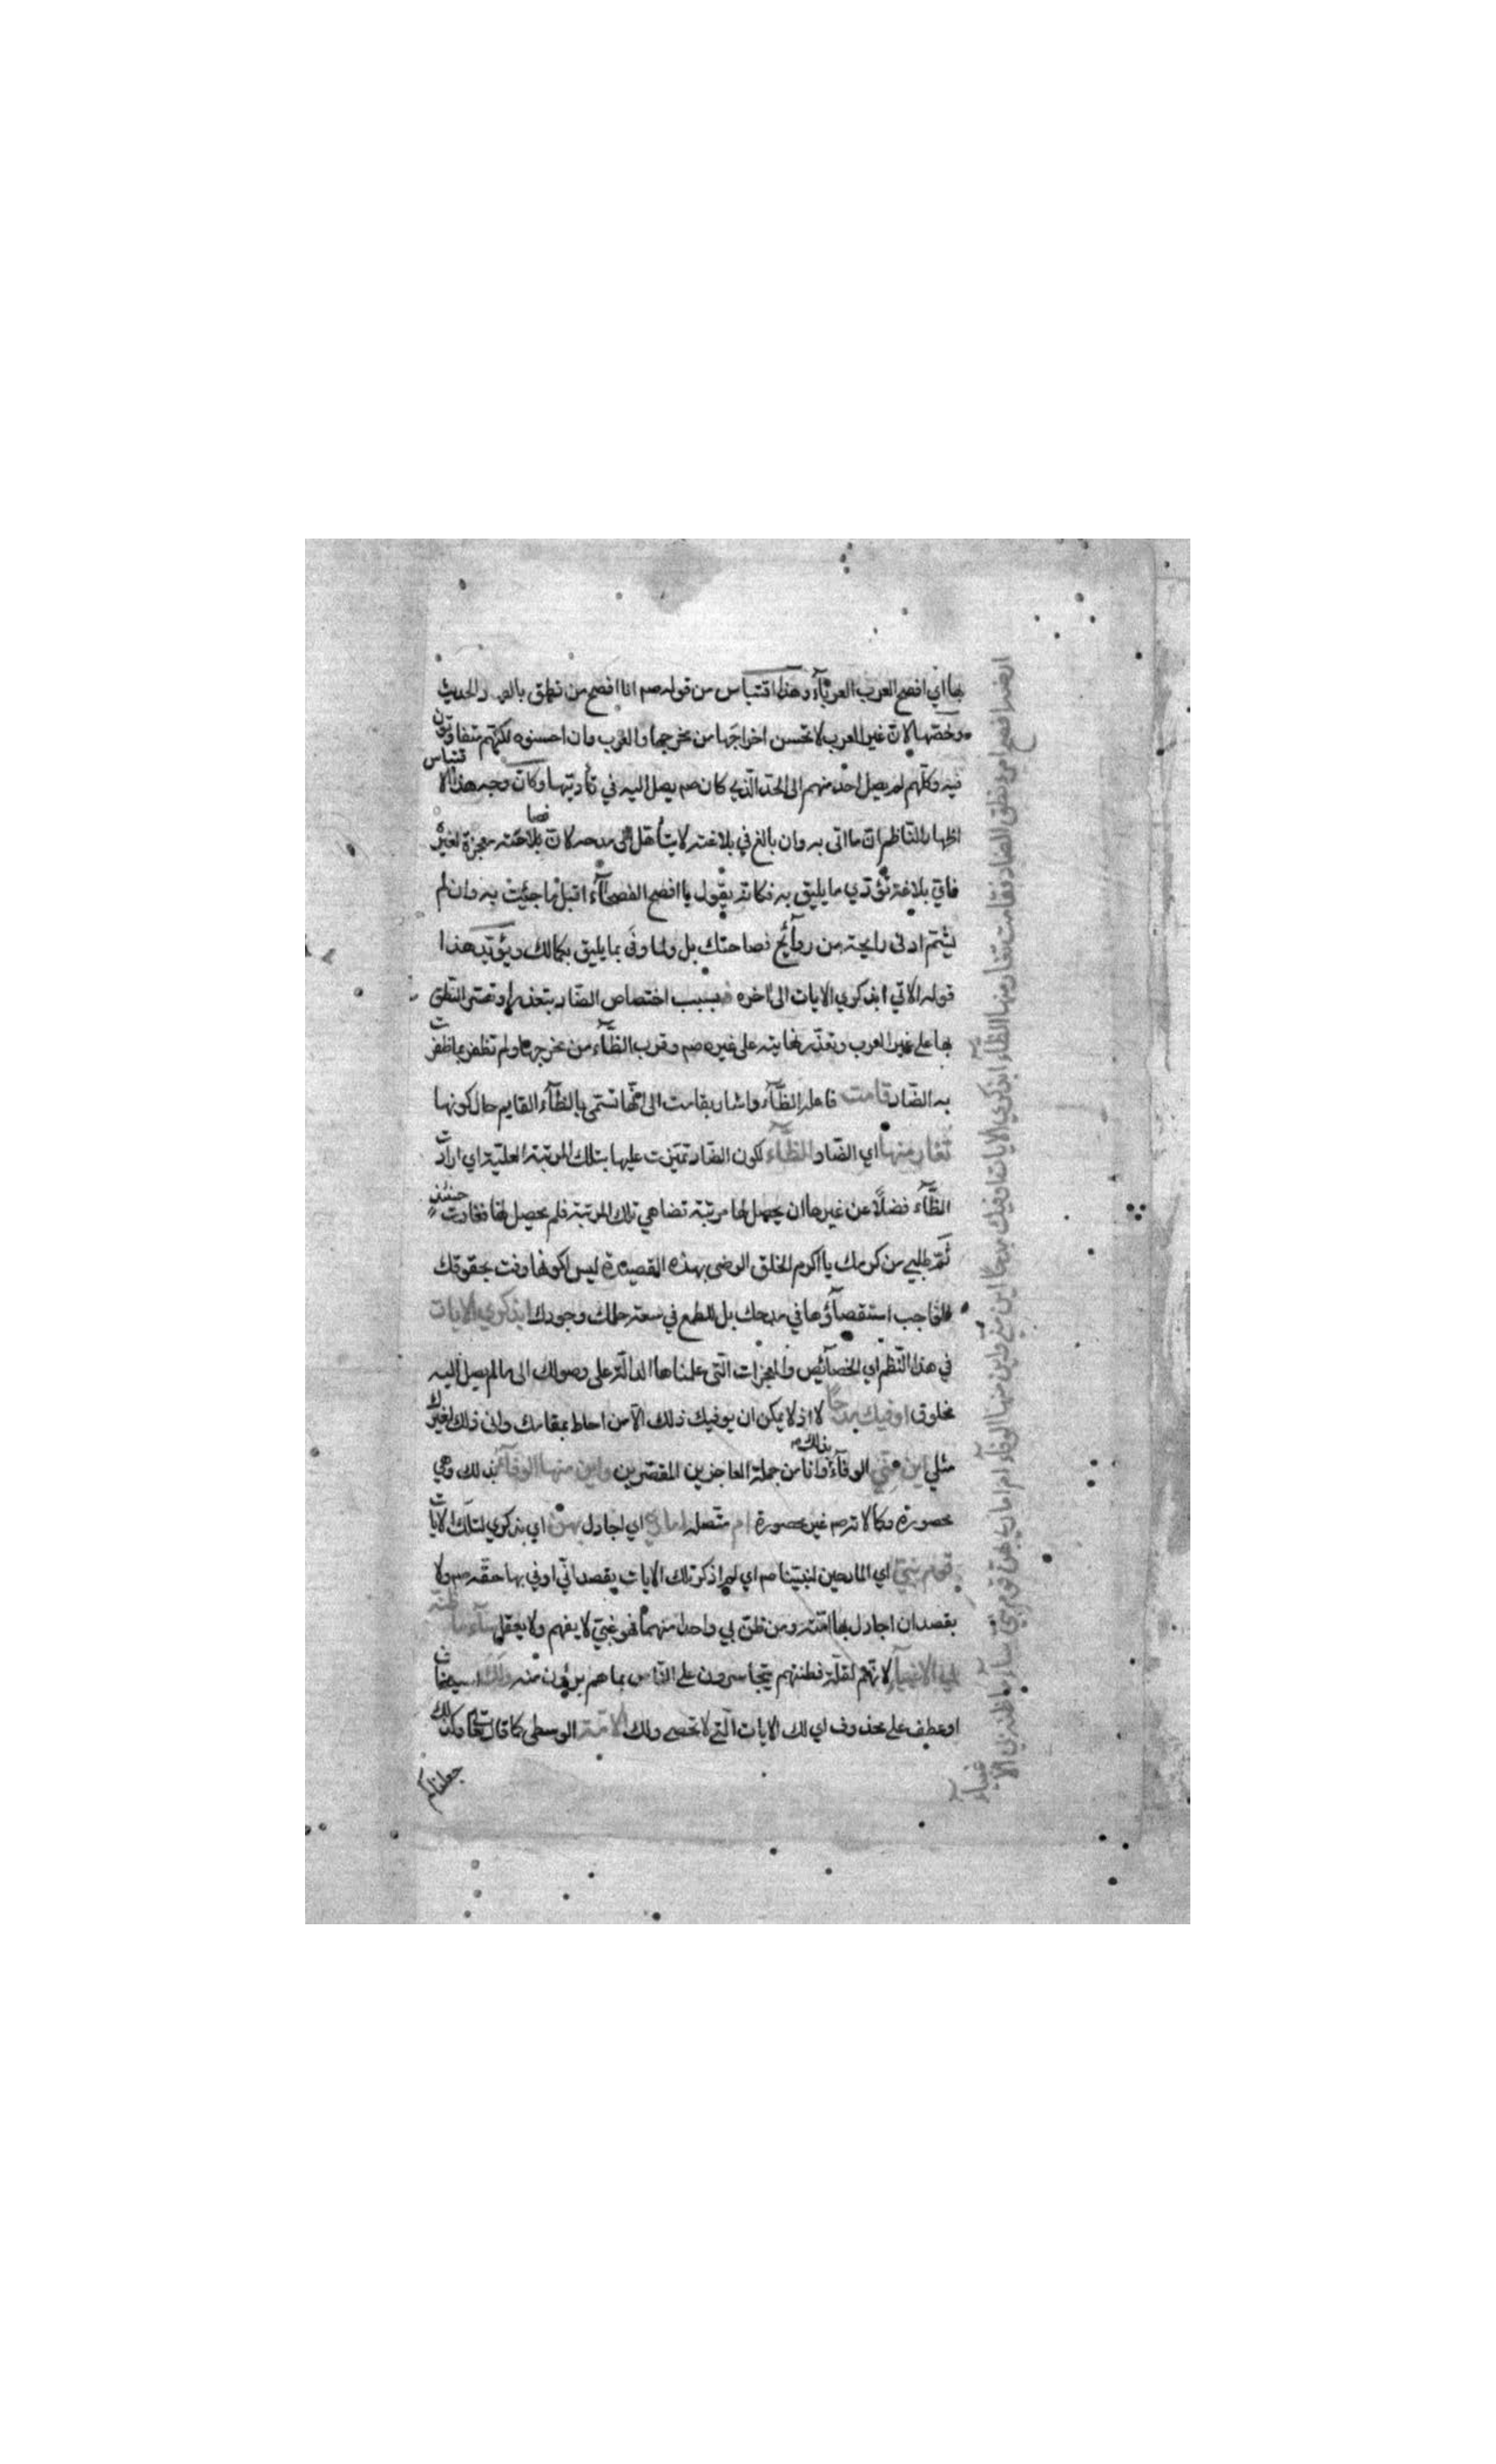 بها اي افصح العرب العربآء وهذا اقتباس من قوله صم انا افصح من نطق بالضاد والحديث
وخصّها لانّ غير العرب لا تحسن اخراجها من مخرجها والعرب وان احسنوه لكنّهم متفاوتون
فيه وكلّهم لم يصل احد منهم الى الحدّ الّذي كان صم يصل اليه في تأديتها وكانّ وجه هذا الاقتباس
اظهار النّاظم انّ ما اتى به وان بالغ في بلاغته لا يتأهّل الى مدحه كانت بلاغته معجزة لغيره
فايّ بلاغة تؤدّي ما يليق به فكانه يقول يا افصح الفصحآء اقبل ما جئيت به وان لم
يشتم ادنى رايحة من روآئح فصاحتك بل ولما وفى بما يليق بكمالك ويؤيّد هذا
قوله الاتي ابذكري الايات الى اخره فبسبب اختصاص الضّاد بتعذر او تعسّر النّطق
بها على غير العرب وتعذّر نهايته على غيره صم وقرب الظّآء من مخرجها ولم تظفر بما ظفرت
به الضّاد قامت فاعله الظّآء واشار بقامت الى انّها تسمّى بالظّآء القايم حال كونها
تغار منها اي الضّاد الظّآء لكون الضّاد تميّزت عليها بتلك المرتبة العليّة اي ارادت
الظّآء فضلاً عن غيرها ان يحصل لها مرتبة تضاهي تلك المرتبة فلم يحصل لها فغارت حينئذ
ثمّ طلبي من كرمك يا اكرم الخلق الرضى بهذه القصيدة ليس لكونها وفت بحقوقك
الواجب استقصآؤها في مدحك بل للطمع في سعة حلمك وجودك ابذكري الايات
في هذا النّظم اي الخصآئص والمعجزات الّتي علمناها الدالّة على وصولك الى ما لم يصل اليه
مخلوق اوفيك مدحًا لا اذ لا يمكن ان يوفيك ذلك الّا من احاط بمقامك وانى ذلك لغيرك
مثلي اين منّي الوفآء بذلك وانا من جملة العاجزين المقصّرين واين منها الوفآء بذلك وهي
محصورة وكمالاته صم غير محصورة ام متّصله اماري اي اجادل بهنّ اي بذكري لتلك الايات
قوم نبيّ اي المادحين لنبيّنا صم اي لم اذكر تلك الايات بقصد انّي اوفي بها حقّه صم ولا
بقصد ان اجادل بها امّته ومن ظنّ بي واحدا منهما فهو غبيّ لا يفهم ولا يعقل سآء ما ظنّه
بي الاغبيآء لانّهم لقلّة فطنتهم يتجاسرون على النّاس بما هم بريؤن منه ولك
او عطف على محذوف اي لك الايات الّتي لا تحصى ولك الامّة الوسطى كما قال تعا وكذلك
جعلناكم
ارضه افصح امرء نطق الضاد فقامت تغار منها الظّآء ابذكري الايات اوفيك مدحًا اين منّي واين منها الوفآء ام اماري بهنّ قوم نبيّ سآء ما ظنّه بي الا
غبيآء